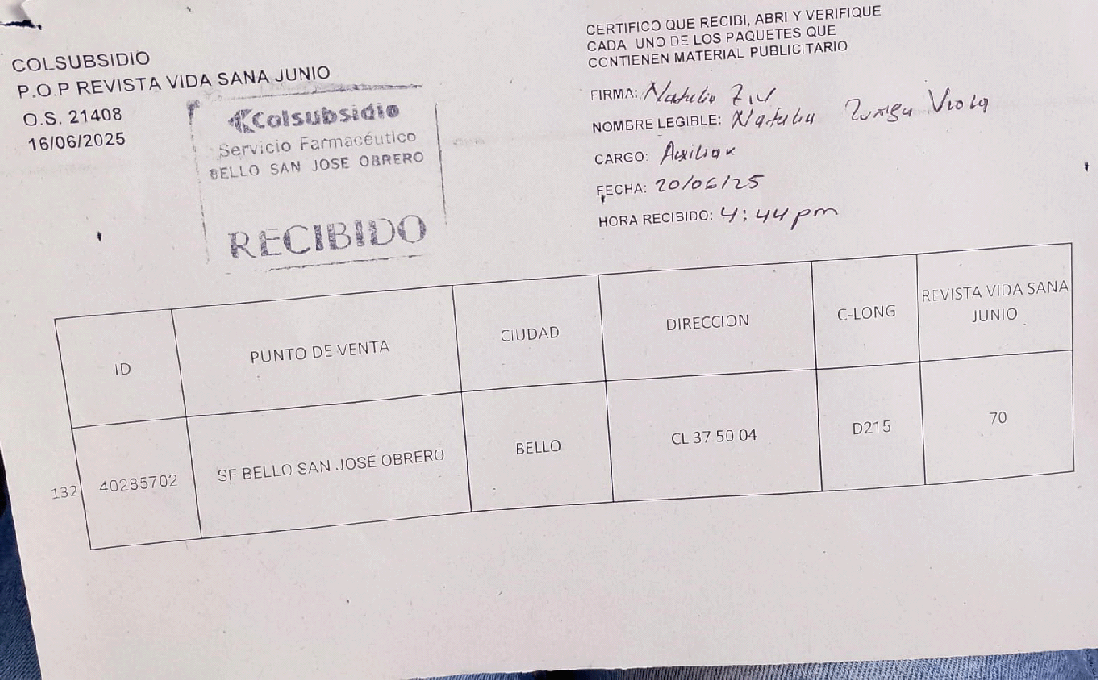 COLSUBSIDIO
P.O.P REVISTA VIDA SANA JUNIO
O.S. 21408
16/06/2025
Colsubsidio
Servicio Farmacéutico
BELLO SAN JOSE OBRERO
RECIBIDO
CERTIFICO QUE RECIBI, ABRI Y VERIFIQUE
CADA UNO DE LOS PAQUETES QUE
CONTIENEN MATERIAL PUBLICITARIO
FIRMA: Natalia
NOMBRE LEGIBLE: Natalia Zuniga
CARGO: Auxiliar
FECHA: 20/06/25
HORA RECIBIDO: 4:44 pm
ID PUNTO DE VENTA CIUDAD DIRECCION C-LONG REVISTA VIDA SANA JUNIO
132 40285702 SF BELLO SAN JOSE OBRERO BELLO CL 37 50 04 D215 70